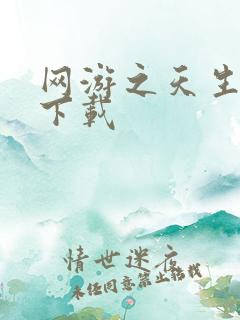 网游之天生
下载
情世迷衣
未经同意禁止转载